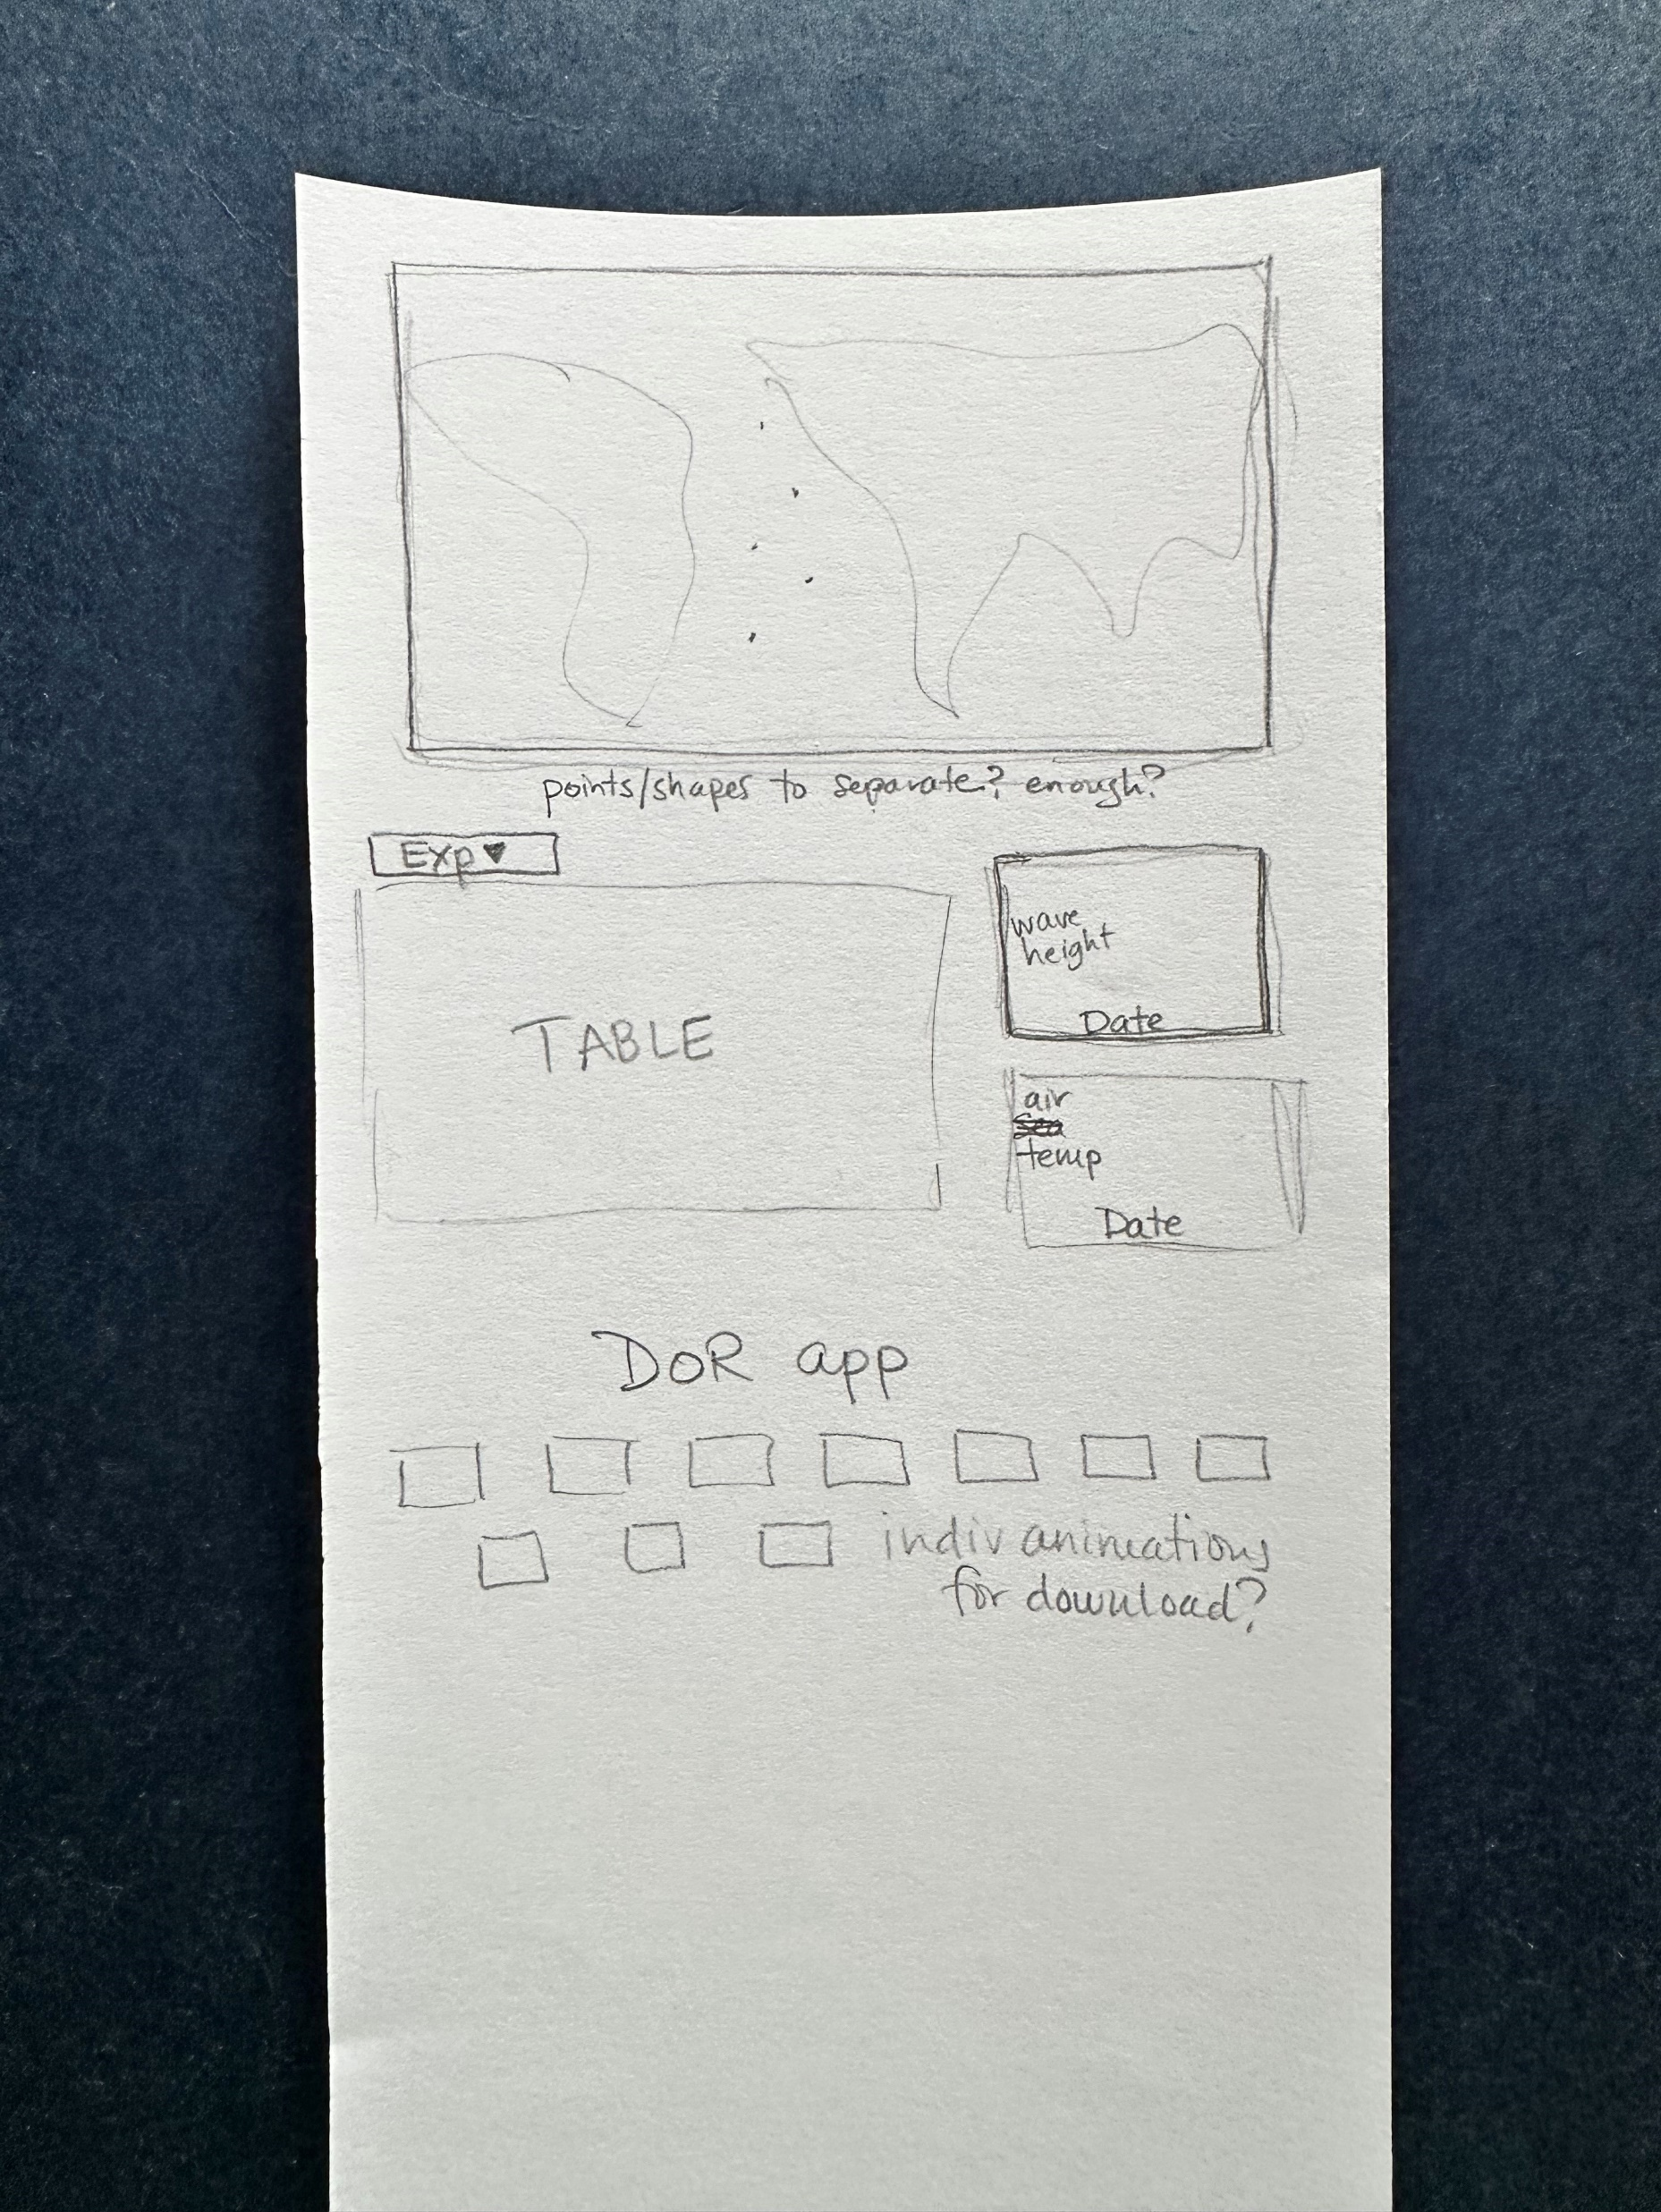 points/shapes to separate? enough?
Exp ▼
TABLE
wave
height
Date
air
temp
Date
DoR app
indiv animations
for download?